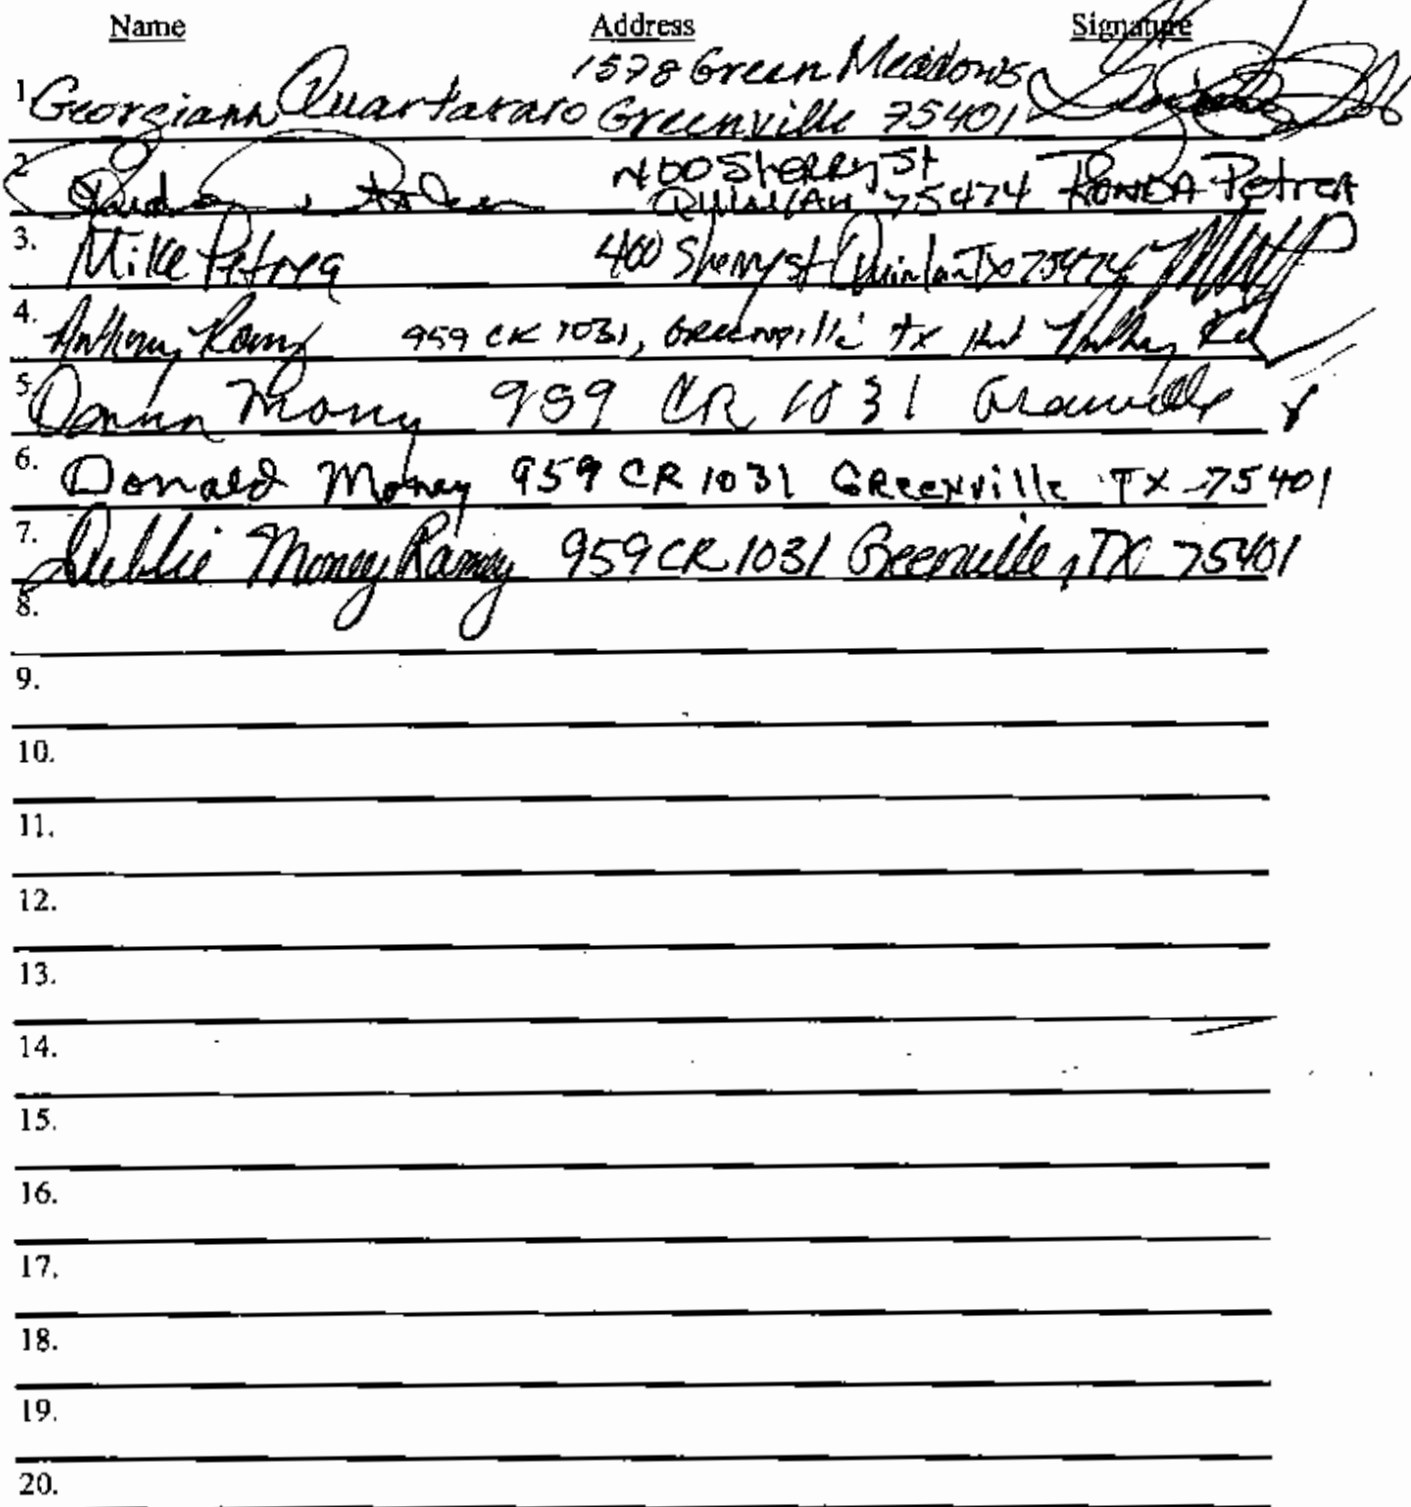 Name Address Signature
1578 Green Meadows
1. Georgiann Quartararo Greenville 75401
2 400 Sherry St
Quinlan 75474 Ronda Petrea
3. Mike Petrea 400 Sherry st Quinlan Tx 75474
4. Anthony Ramy 959 CR 1031, Greenville Tx
5. Money 959 CR 1031 Greenville
6. Donald Money 959 CR 1031 Greenville TX 75401
7. Debbie Money Ramey 959 CR 1031 Greenville, TX 75401
8.
9.
10.
11.
12.
13.
14.
15.
16.
17.
18.
19.
20.